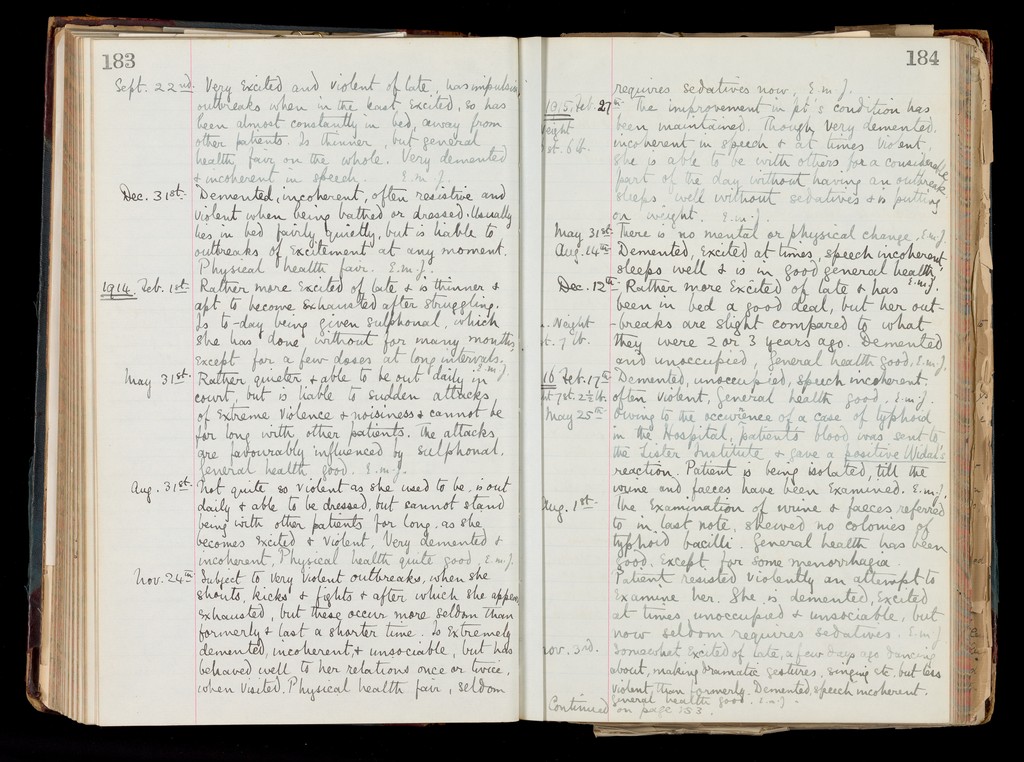 183
Sept. 22nd. Very Excited and violent of late, has impulsive
outbreaks when in the least Excited, so has
been almost constantly in bed, away from
other patients. Is thinner, but general
health fair on the whole. Very demented
& incoherent in speech. E.M.J.
Dec. 31st. Demented, incoherent, often resistive and
violent when being bathed or dressed. Usually
lies in bed fairly quietly, but is liable to
outbreaks of Excitement at any moment.
Physical health fair. E.M.J.
1914. Feb. 1st. Rather more Excited of late & is thinner &
apt to become Exhausted after struggling.
Is to-day being given Sulphonal, which
she has done without for many months,
Except for a few doses at long intervals.
E.M.J.
May 31st. Rather quieter & able to be out daily in
court, but is liable to sudden attacks
of Extreme Violence & noisiness & cannot be
for long with other patients. The attacks
are favourably influenced by Sulphonal.
General health good. E.M.J.
Aug. 31st. Not quite so violent as she used to be, is out
daily & able to be dressed, but cannot stand
being with other patients for long, as she
becomes Excited & Violent, Very demented &
incoherent, Physical health quite good, E.M.J.
Nov. 24th Subject to Very Violent outbreaks, when she
shouts, kicks & fights & after which she appears
Exhausted, but these occur more seldom than
formerly & last a shorter time. Is Extremely
demented, incoherent, & unsociable, but has
behaved well to her relations once or twice,
when visited. Physical health fair, seldom
184
requires sedatives now, E.M.J.
1915. Feb. 27th. The improvement in pt's condition has
been maintained. Though very demented,
incoherent in speech & at times violent,
she is able to be with others for a considerable
part of the day without having an outbreak
sleeps well without sedatives & is putting
on weight. E.M.J.
May 31st. There is no mental or physical change. E.M.J.
Aug. 14th. Demented, Excited at times, speech incoherent,
sleeps well & is in good general health.
E.M.J.
Dec. 12th Rather more Excited of late & has
been in bed a good deal, but her out-
-breaks are slight compared to what
Weight 7 lb. they were 2 or 3 years ago. Demented
and unoccupied, General health good, E.M.J.
16 Feb. 17th Demented, unoccupied, speech incoherent,
7st. 2½ lb. often violent, General health good. E.M.J.
May 25th Owing to the occurrence of a case of typhoid
in the Hospital, patient's blood was sent to
the Lister Institute & gave a positive Widal's
reaction. Patient is being isolated, till the
urine and faeces have been Examined. E.M.J.
Aug. 1st. The Examination of urine & faeces, referred
to in last note, shewed no colonies of
typhoid bacilli. General health has been
good, Except for some menorrhagia.
Patient resisted violently an attempt to
Examine her. She is demented, Excited
at times, unoccupied & unsociable, but
now seldom requires sedatives. E.M.J.
Nov. 3rd. Somewhat Excited of late, a few days ago dancing
about, making dramatic gestures, singing etc. but less
violent, than formerly. Demented, speech incoherent.
General health good. E.M.J.
Continued on page 153.